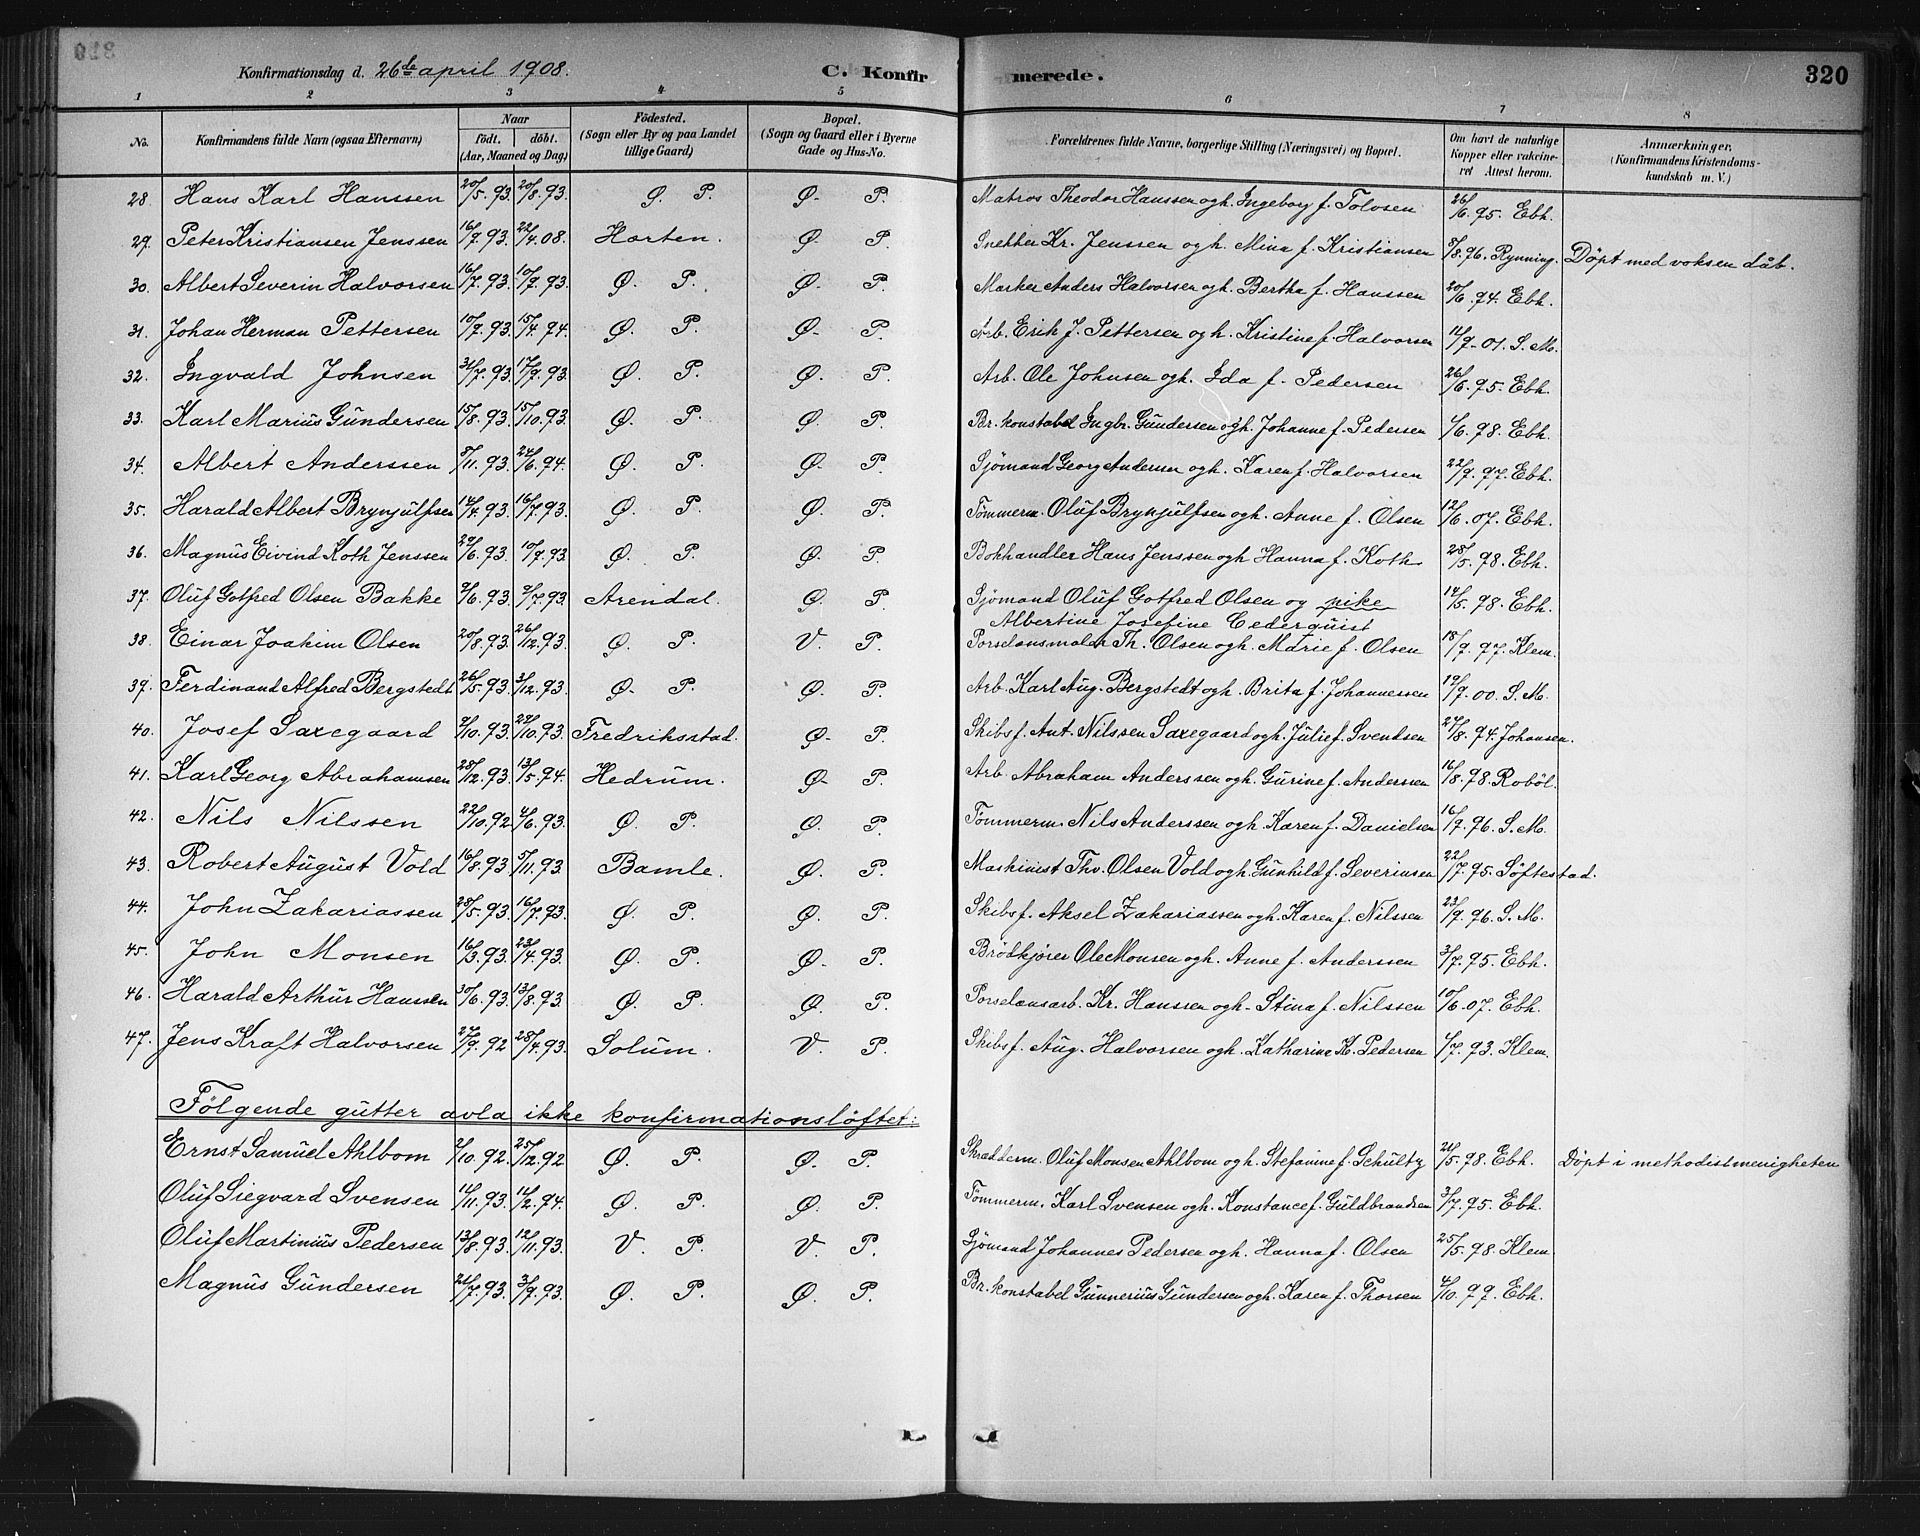 Konfirmationsdag d. 26de april 1908. C. Konfirmerede. 320
1 2 3 4 5 6 7 8
No. Konfirmandens fulde Navn (ogsaa Efternavn) Naar födt. döbt. (Aar, Maaned og Dag) Födested. (Sogn eller By og paa Landet tillige Gaard) Bopæl. (Sogn og Gaard eller i Byerne Gade og Hus-No. Forældrenes fulde Navne, borgerlige Stilling (Næringsvei) og Bopæl. Om havt de naturlige Kopper eller vakcineret Attest herom. Anmærkninger, (Konfirmandens Kristendomskundskab m. V.)
28. Hans Karl Hanssen 20/5.93. 20/8.93. Ø. P. Ø. P. Matros Theodor Hanssen og h. Ingeborg f. Tolvsen 26/6.95. Ebh.
29. Peter Kristiansen Jenssen 16/9.93. 22/4.08. Horten. Ø. P. Snekker Kr. Jenssen og h. Mina f. Kristiansen 8/8.96. Rynning. Döpt med voksen dåb.
30. Albert Severin Halvorsen 16/7.93. 10/9.93. Ø. P. Ø. P. Marker Anders Halvorsen og h. Bertha f. Hanssen 20/6.94. Ebh.
31. Johan Herman Pettersen 10/9.93. 15/4.94. Ø. P. Ø. P. Arb. Erik J. Pettersen og h. Kristine f. Halvorsen 12/9-01. S. M.
32. Ingvald Johnsen 31/7.93. 17/9.93. Ø. P. Ø. P. Arb. Ole Johnsen og h. Ida f. Pedersen 26/6.95. Ebh.
33. Karl Marius Gundersen 15/8.93. 15/10.93. Ø. P. Ø. P. Br. konstabel Ingbr. Gundersen og h. Johanne f. Pedersen 1/6.98. Ebh.
34. Albert Anderssen 8/11.93. 24/6.94. Ø. P. Ø. P. Sjömand Georg Andersen og h. Karen f. Halvorsen 22/9.97. Ebh.
35. Harald Albert Brynjulfsen 14/4.93. 16/7.93. Ø. P. Ø. P. Tömmerm. Oluf Brynjulfsen og h. Anne f. Olsen 12/6.07. Ebh.
36. Magnus Eivind Koth Jenssen 29/6.93. 10/9.93. Ø. P. Ø. P. Bokhandler Hans Jenssen og h. Hanna f. Koth 28/5.98. Ebh.
37. Oluf Gotfred Olsen Bakke 9/6.93. 9/7.93. Arendal. Ø. P. Sjömand Oluf Gotfred Olsen og pike 14/5.98. Ebh.
Albertine Josefine Cederquist
38. Einar Joakim Olsen 20/8.93. 26/12.93. Ø. P. V. P. Porselansmaler Th. Olsen og h. Marie f. Olsen 18/9.97. Klem.
39. Ferdinand Alfred Bergstedt 26/5.93. 3/12.93. Ø. P. Ø. P. Arb. Karl Aug. Bergstedt og h. Brita f. Johannessen 19/9.00. S. M.
40. Josef Saxegaard 9/10.93. 29/10.93. Fredriksstad. Ø. P. Skibsf. Ant. Nilssen Saxegaard og h. Julie f. Svendsen 27/8.94. Johansen.
41. Karl Georg Abrahamsen 28/12.93. 13/5.94. Hedrum. Ø. P. Arb. Abraham Anderssen og h. Gurine f. Andersen 16/8.98. Roböl.
42. Nils Nilssen 22/10.92 4/6.93. Ø. P. Ø. P. Tömmerm. Nils Anderssen og h. Karen f. Danielsen 16/9.96. S. M.
43. Robert August Vold 16/8.93. 5/11.93. Bamle. Ø. P. Maskinist Thv. Olsen Vold og h. Gunhild f. Severinsen 22/7.95. Söftestad.
44. John Zakariassen 28/5.93. 16/7.93. Ø. P. Ø. P. Skibsf. Aksel Zakariassen og h. Karen f. Nilssen 23/9.96. S. M.
45. John Monsen 16/3.93. 23/4.93. Ø. P. Ø. P. Brödkjörer Ole Monsen og h. Anne f. Anderssen 3/7.95. Ebh.
46. Harald Arthur Hanssen 30/6.93. 13/8.93. Ø. P. Ø. P. Porselansarb. Kr. Hanssen og h. Stina f. Nilssen 10/6.07. Ebh.
47. Jens Kraft Halvorsen 27/9.92 28/4.93. Solum. V. P. Skibsf. Aug. Halvorsen og h. Katharine K. Pedersen 1/7.93. Klem.
Fölgende gutter avla ikke konfirmationslöftet:
Ernst Samuel Ahlbom 2/10.92. 25/12.92 Ø. P. Ø. P. Skrædderm. Oluf Monsen Ahlbom og h. Stefanine f. Schultz 21/5.98. Ebh. Döpt i methodistmenigheten
Oluf Siegvard Svensen 11/11.93. 11/2.94. Ø. P. Ø. P. Tömmerm. Karl Svensen og h. Konstance f. Guldbrandsen 3/7.95. Ebh.
Oluf Martinius Pedersen 13/8.93. 12/11.93. V. P. V. P. Sjömand Johannes Pedersen og h. Hanna f. Olsen 25/5.98. Klem.
Magnus Gundersen 21/7.93. 3/9.93. Ø. P. Ø. P. Br. konstabel Gunnerius Gundersen og h. Karen f. Thorsen 4/10.99. Ebh.